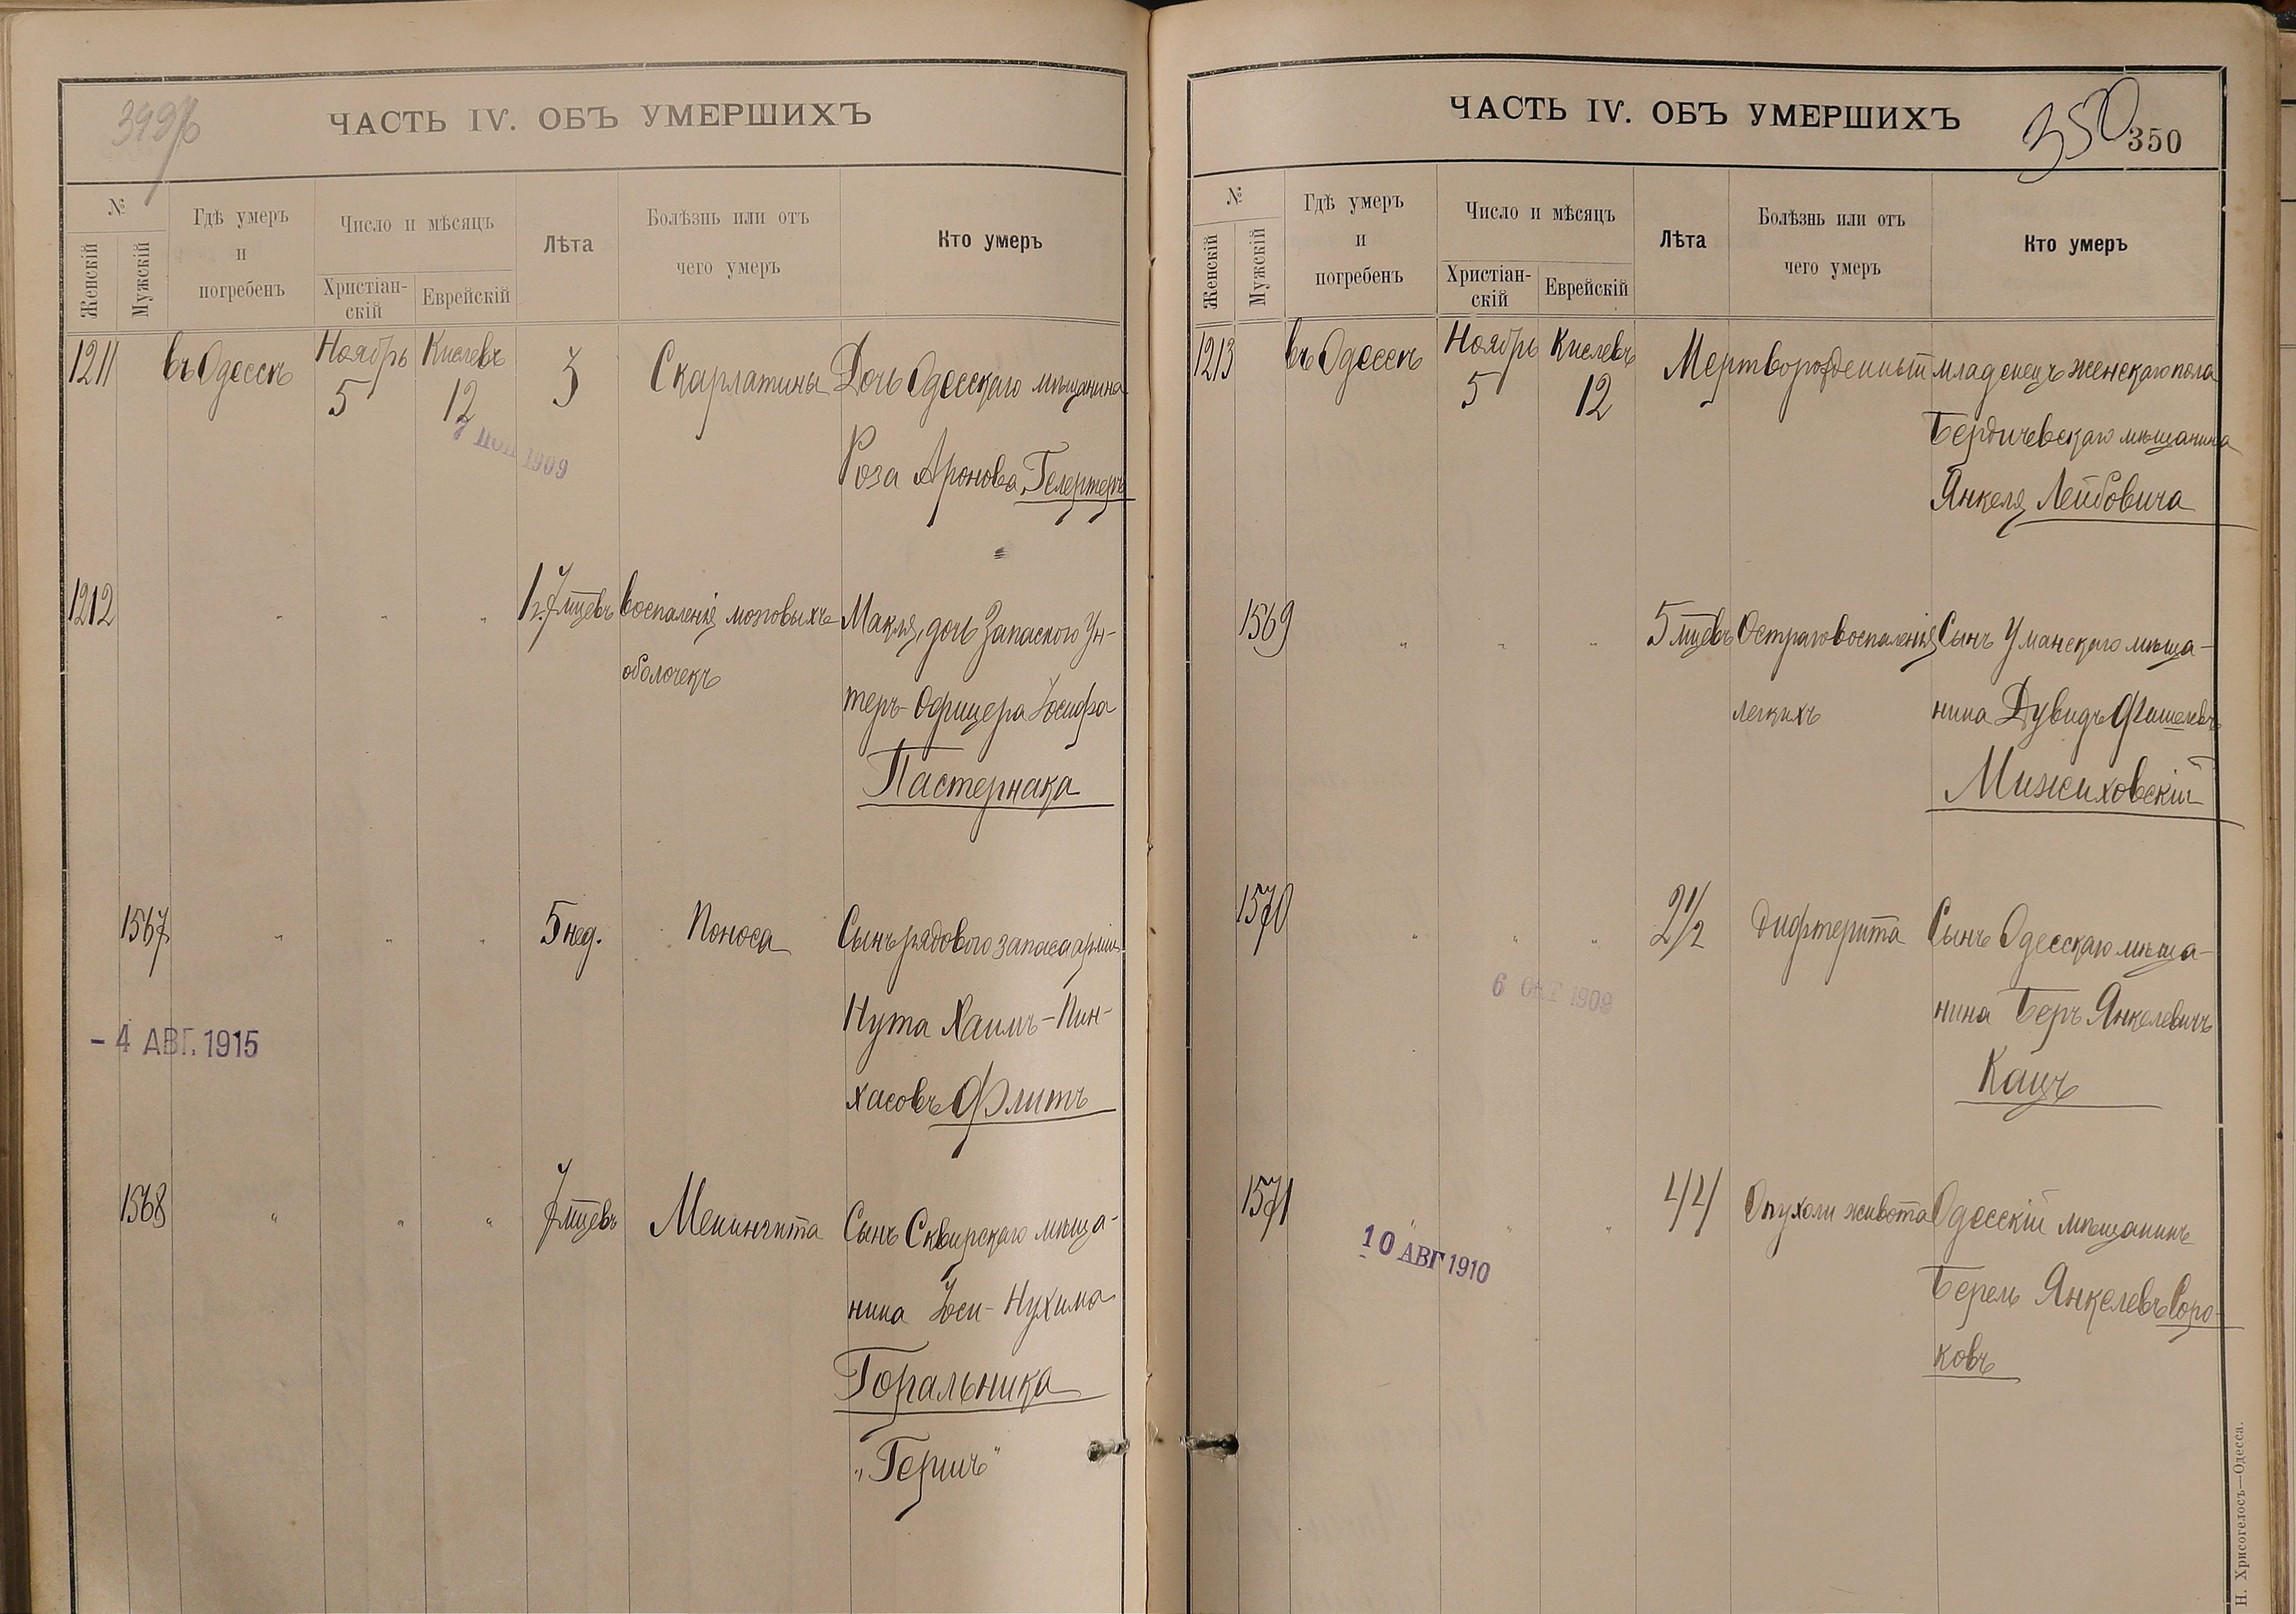 349об
ЧАСТЬ IV. ОБЪ УМЕРШИХЪ
№
Женскій
Мужскій
Гдѣ умеръ
и
погребенъ
Число и мѣсяцъ
Христіан-
скій
Еврейскій
Лѣта
Болѣзнь или отъ
чего умеръ
Кто умеръ
1211 въ Одессѣ Ноябрь 5 Кислевъ 12 3 Скарлатины Дочь Одесскаго мѣщанина
7 НОЯ 1909
Роза Аронова Гелертеръ
1212 " " " 1 г. 7 мцевъ воспаленія мозговыхъ Макля, дочь Запасного Ун-
оболочекъ
теръ-Офицера Іосифа
Пастернака
1567 " " " 5 нед. Поноса Сынъ рядового запаса арміи
Нута Хаимъ-Пин-
- 4 АВГ. 1915
хасовъ Флитъ
1568 " " " 7 мцевъ Менингита Сынъ Сквирскаго мѣща-
нина Іоси-Нухима
Горальника
"Гершъ"
ЧАСТЬ IV. ОБЪ УМЕРШИХЪ
350
350
№
Женскій
Мужскій
Гдѣ умеръ
и
погребенъ
Число и мѣсяцъ
Христіан-
скій
Еврейскій
Лѣта
Болѣзнь или отъ
чего умеръ
Кто умеръ
1213 въ Одессѣ Ноябрь 5 Кислевъ 12 Мертворожденный младенецъ женскаго пола
Бердичевскаго мѣщанина
Янкеля Лейбовича
1569 " " " 5 мцевъ Остраго воспаленія Сынъ Уманскаго мѣща-
легкихъ
нина Дувидъ Фишелевъ
Мижиховскій
1570 " " " 2 1/2 Дифтерита Сынъ Одесскаго мѣща-
6 ОКТ 1909
нина Беръ Янкелевичъ
Кацъ
1571 " " " 44 Опухоли живота Одесскій мѣщанинъ
10 АВГ 1910
Берель Янкелевъ Воро-
ковъ
Н. Хрисогелосъ—Одесса.